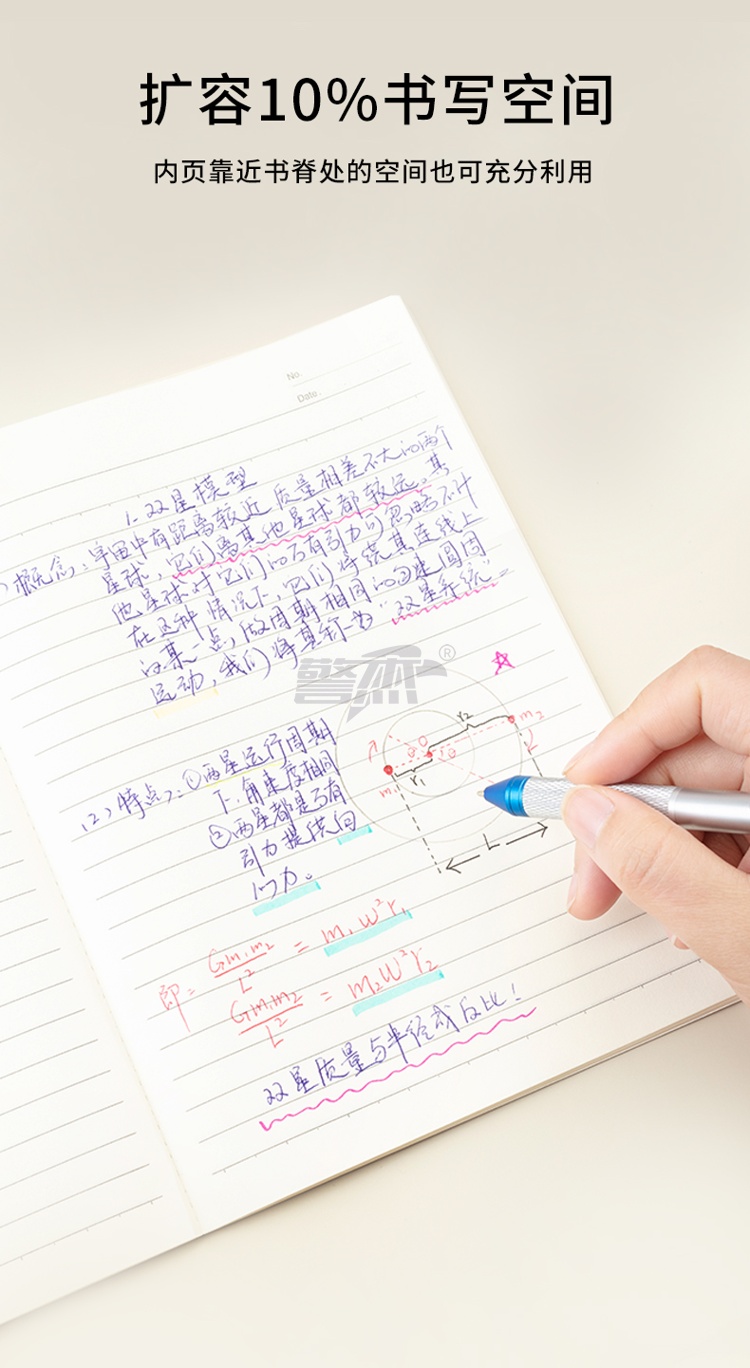 扩容10%书写空间
内页靠近书脊处的空间也可充分利用
No.
Date.
1.双星模型
概念:宇宙中有距离较近 质量相差不大的两个
星球,它们离其他星球都较远。其
他星球对它们的万有引力可忽略不计
在这种情况下,它们将绕其连线上
的某一点,做周期相同的匀速圆周
运动,我们将其称为"双星系统"
警杰®
(2)特点:①两星运行周期
下.角速度相同
②两星都是万有
引力提供向
心力。
r₂
m₂
θ
O
θ
m₁
r₁
L
即: Gm₁m₂/L² = m₁W²r₁
Gm₁m₂/L² = m₂W²r₂
双星质量与半径成反比!